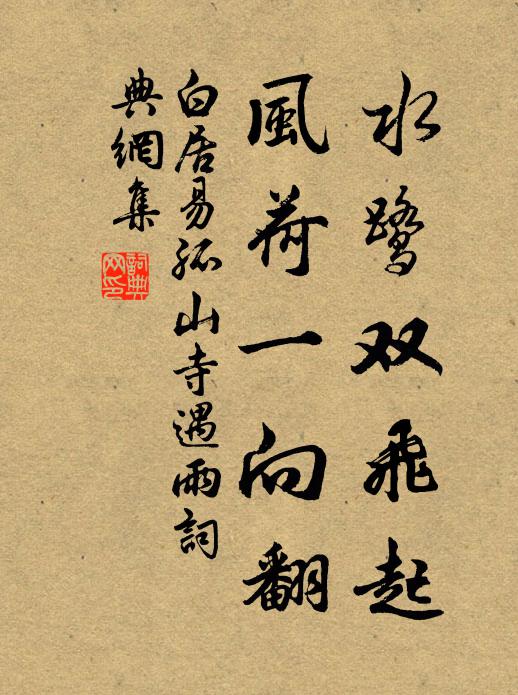 水鹭双飛起
風荷一向翻
白居易孤山寺遇雨詞
典網集
詞典
网印